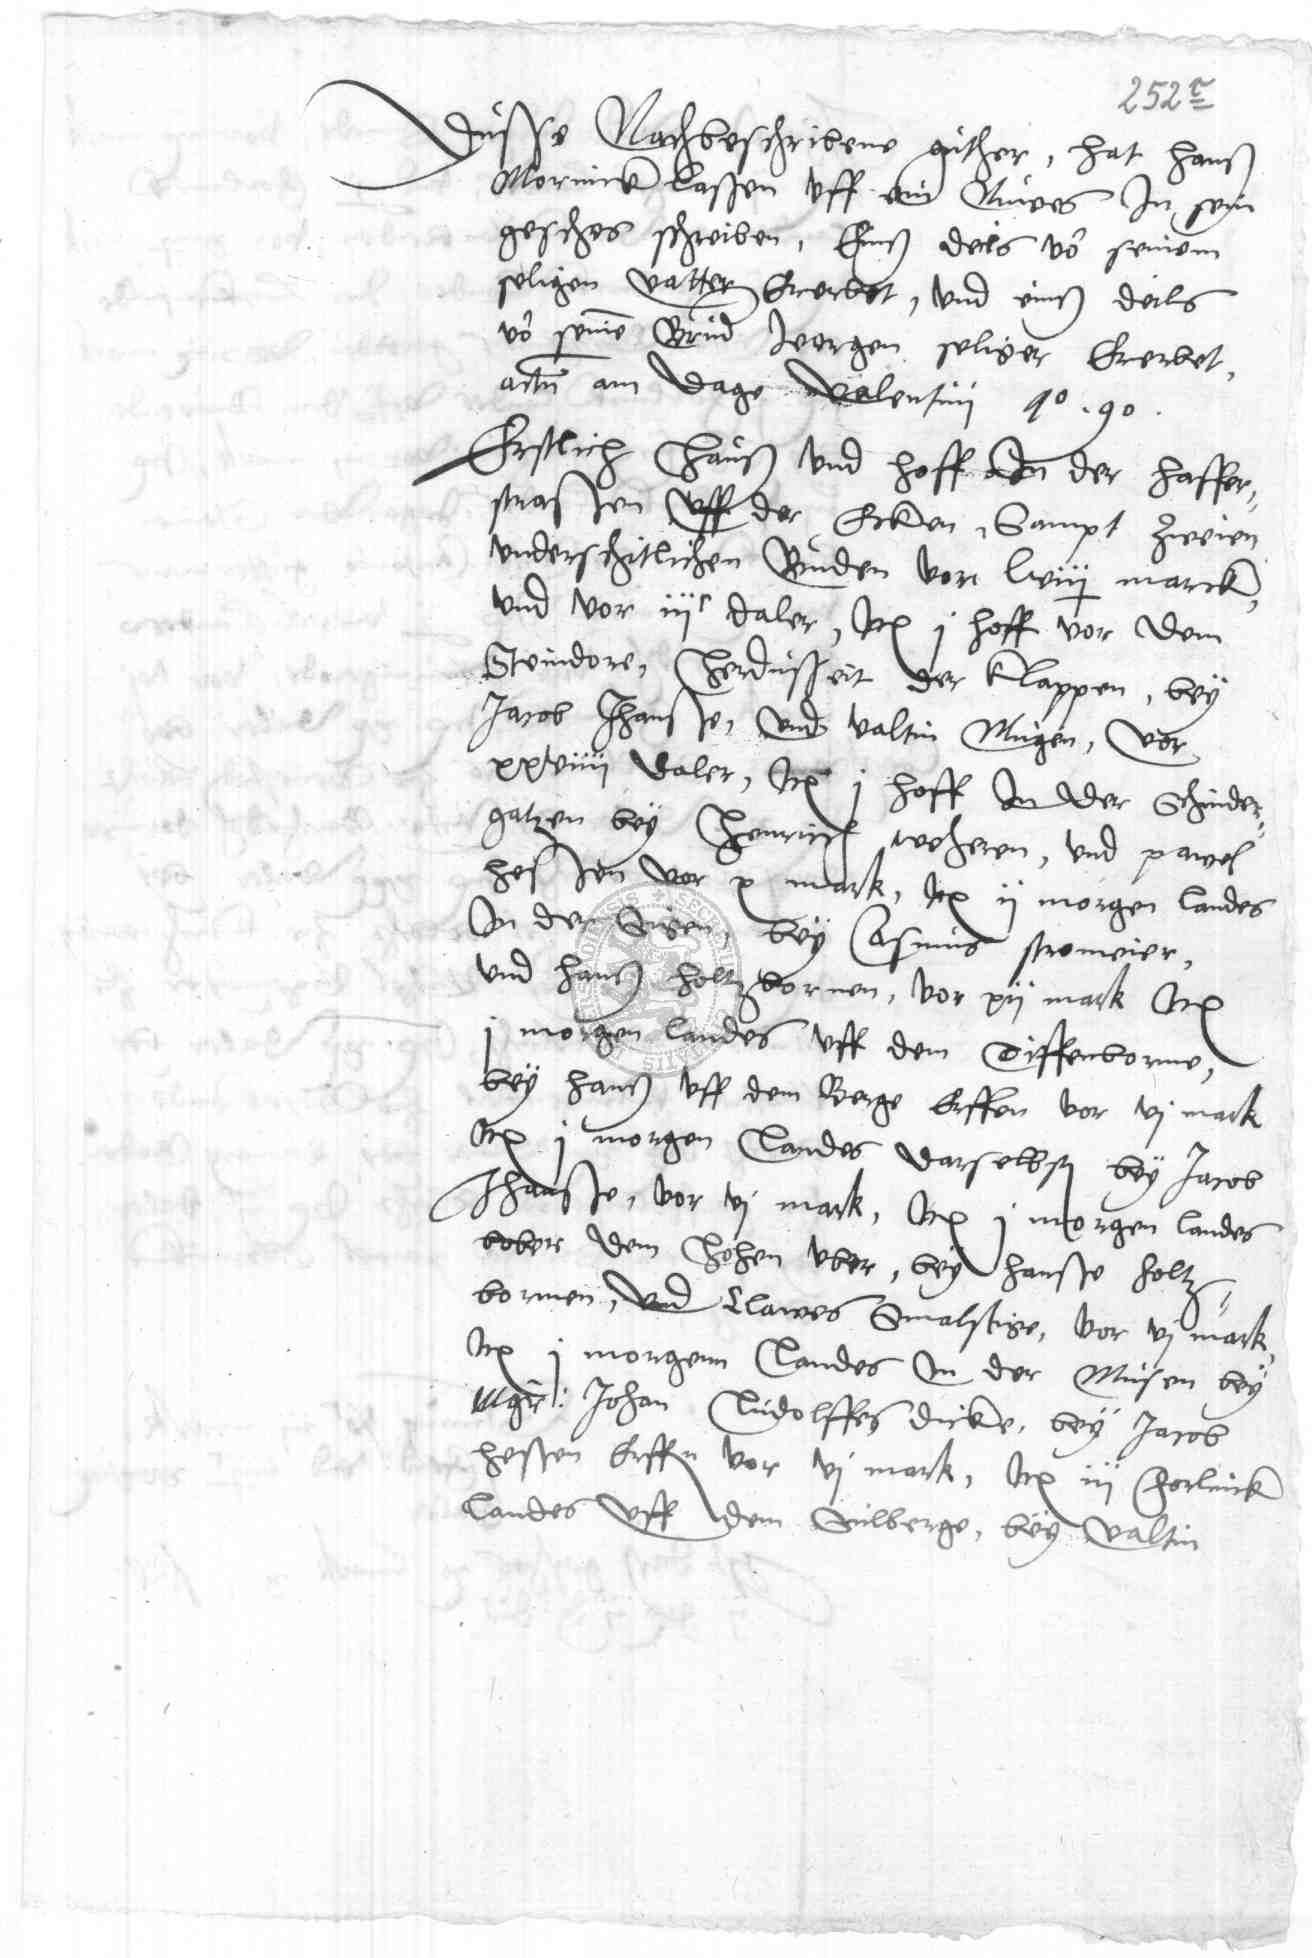 252 r
Dusse Nachbeschribene guther, hat hanß
Mornick lassen uff ein Nuwes In sein
gesches schreiben, Eins deils vō seinem
seligen vatter Ererbet, und einß deils
vō seinē Brud Jeorgen seliger Ererbet,
actū am dage Valentini ao . 90 .
Erstlich Hauß und hoff An der haffer-
strassen uff der Ecken, Sampt zweien
underschitlichen Buden vor lviij marck,
und vor iijc daler, Itē j hoff vor dem
Steindore, Herdusseit der Klappen, bey
Jacob Thansse, und valtin Mugen, vor
xxviiij daler, Itē j hoff In der Schinder-
gatzen bey Henrich weheren, und pawel
hessen vor x mark, Itē ij morgen landes
In der bey Casmus stromeier,
und hanß holtzbornen, vor xij mark Itē
j morgen landes uff dem Diffenborne,
bey hanß uff dem Berge Erffen vor vj mark
Itē j morgen landes darselbst bey Jacob
Thansse, vor vj mark, Itē j morgen landes
bober dem Hohen uber, bey hansse holtz-
bornen, und Clawes Smalstige, vor vj mark,
Itē j morgenn landes In der Musen bey
Mgr: Johan Ludolffes dicke, bey Jacob
hessen Erffn vor vj mark, Itē iij Forlinck
landes uff dem Sulberge, bey valtin